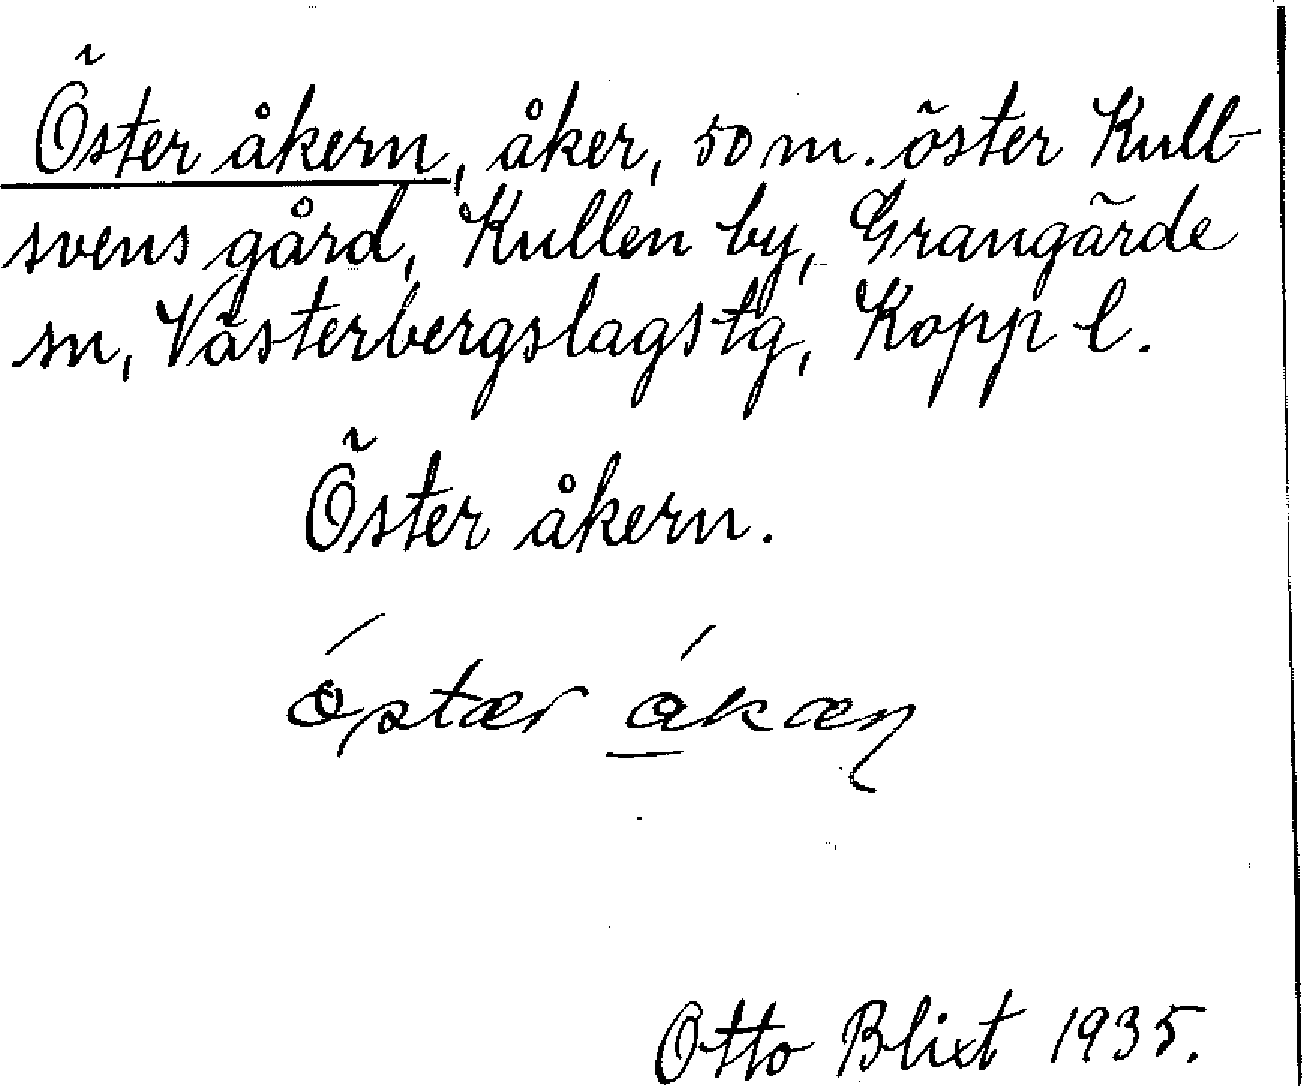 Öster åkern, åker, 50 m. öster Kull-
svens gård, Kullen by, Grangärde
sn, Västerbergslags tg, Kopp l.
Öster åkern.
Otto Blixt 1935.